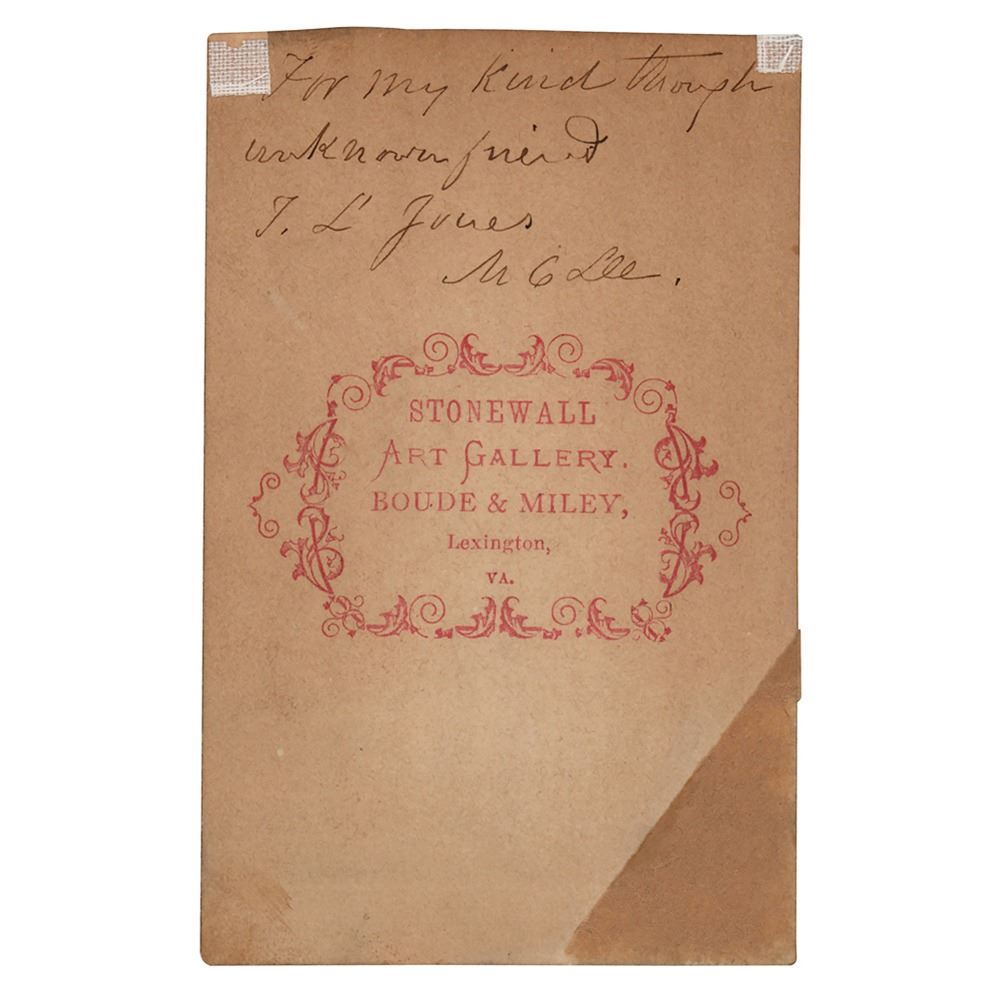 For my Kind though
unknown friend
T. L Jones
M C Lee.
STONEWALL
ART GALLERY.
BOUDE & MILEY,
Lexington,
VA.